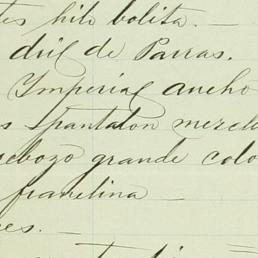 tes hilo bolita. —
dril de Parras.
Imperial ancho
s 1 pantalon mezcl
rebozo grande colo
franelina —
es. —